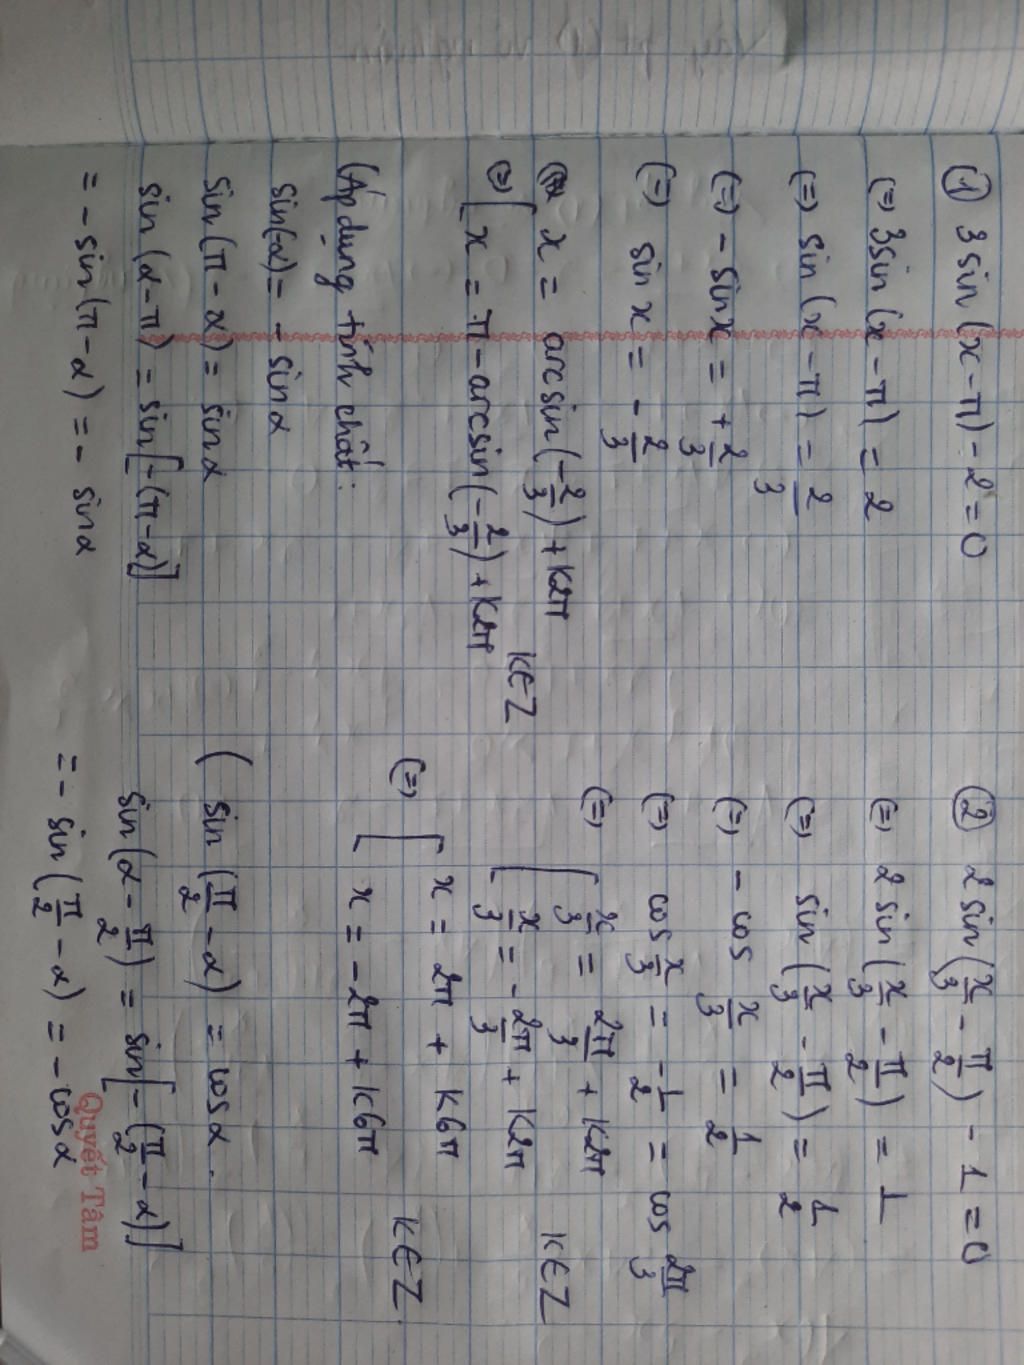 ① 3 sin (x - π) - 2 = 0
(=) 3sin (x - π) = 2
(=) sin (x - π) = 2/3
(=) - sin x = + 2/3
(=) sin x = - 2/3
(=) [ x = arcsin (-2/3) + K2π
x = π - arcsin (-2/3) + K2π K∈Z
(Áp dụng tính chất:
sin(-α) = - sin α
sin (π - α) = sin α
sin (α - π) = sin [-(π - α)]
= - sin (π - α) = - sin α
② 2 sin (x/3 - π/2) - 1 = 0
(=) 2 sin (x/3 - π/2) = 1
(=) sin (x/3 - π/2) = 1/2
(=) - cos x/3 = 1/2
(=) cos x/3 = -1/2 = cos 2π/3
(=) [ x/3 = 2π/3 + K2π
x/3 = - 2π/3 + K2π K∈Z
(=) [ x = 2π + K6π
x = - 2π + K6π K∈Z.
( sin (π/2 - α) = cos α.
sin (α - π/2) = sin [- (π/2 - α)]
= - sin (π/2 - α) = - cos α
Quyết Tâm